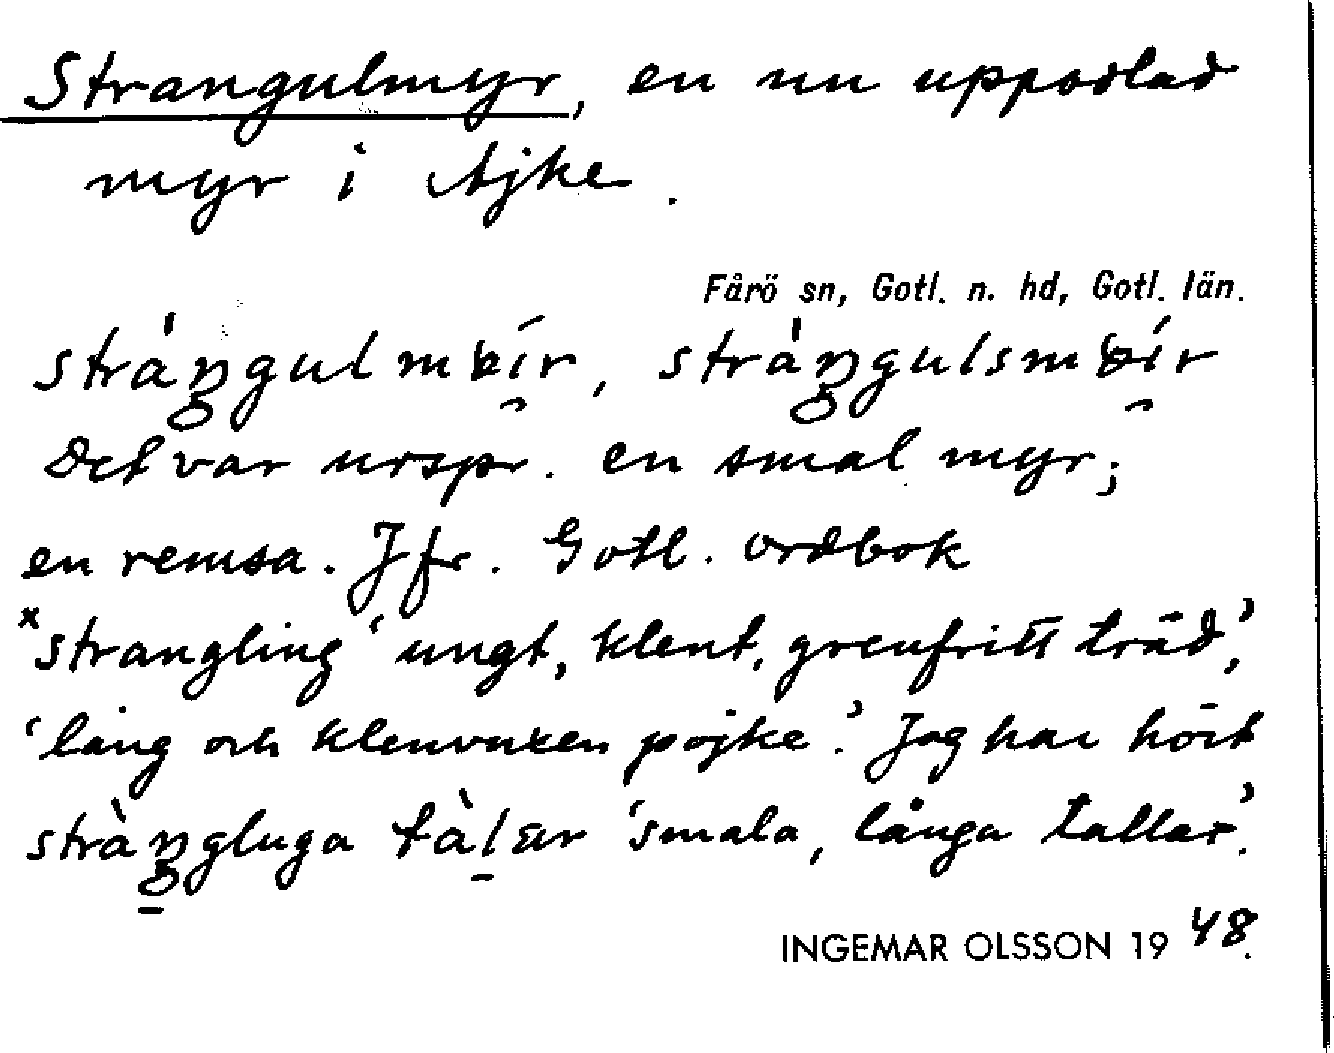 Strangulmyr, en nu uppodlad
myr i Ajke.
Fårö sn, Gotl. n. hd, Gotl. län.
Det var urspr. en smal myr;
en remsa. Jfr. Gotl. ordbok
×strangling 'ungt, klent, grenfritt träd',
'lång och klenvuxen pojke'. Jag har hört
'smala, långa tallar'.
INGEMAR OLSSON 19 48.